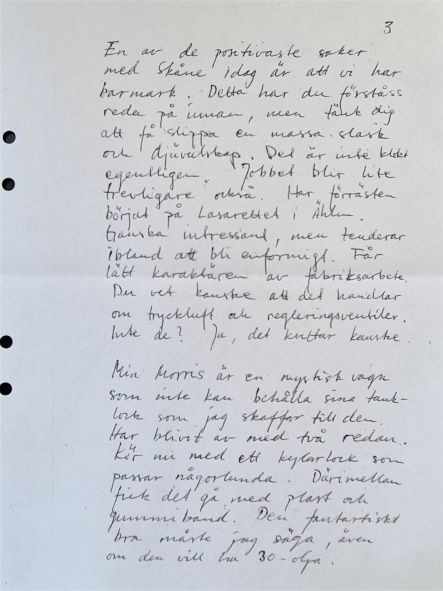 3
En av de positivaste saker
med Skåne idag är att vi har
barmark. Detta har du förståss
reda på innan, men tänk dig
att få slippa en massa slask
och djävulskap. Det är inte klokt
egentligen. Jobbet blir lite
trevligare också. Har förrästen
börjat på Lasarettet i
Ganska intressant, men tenderar
ibland att bli enformigt. Får
lätt karaktären av fabriksarbete.
Du vet kanske att det handlar
om tryckluft och regleringsventiler.
Inte de? Ja, det kvittar kanske.
Min Morris är en mystisk vagn
som inte kan behålla sina tank-
lock som jag skaffar till den.
Har blivit av med två redan.
Kör nu med ett kylarlock som
passar någorlunda. Därimellan
fick det gå med plast och
gummiband. Den fantastiskt
bra måste jag säga, även
om den vill ha 30-olja.